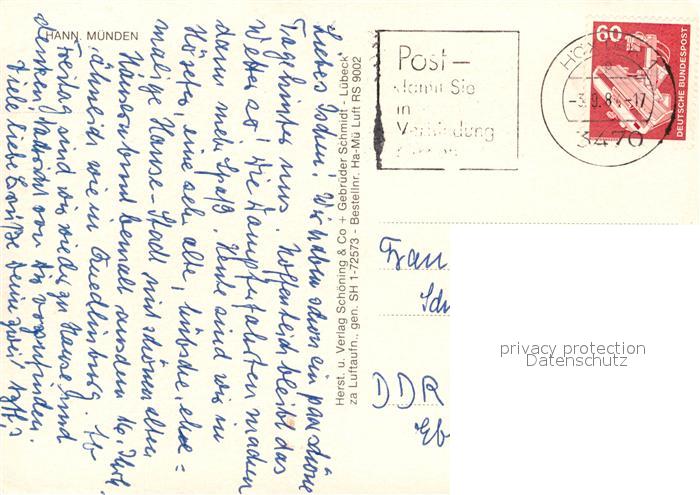 HANN. MÜNDEN
Liebes Ischen! Wir haben schon ein paar schöne
Tage hinter uns. Hoffentlich bleibt das
Wetter so! Die Dampferfahrten machen
dann mehr Spaß. Heute sind wir in
Höxter, eine sehr alte, hübsche, ehe=
malige Hanse-Stadt mit schönen alten
Häusern bunt bemalt aus dem 16. Jhrh.
ähnlich wie in Quedlinburg. Ab
Freitag sind wir wieder zu Hause und
denken, Nachricht von Dir vorzufinden.
Viele liebe Grüße
Herst. u. Verlag Schöning & Co + Gebrüder Schmidt - Lübeck
za Luftaufn., gen. SH 1-72573 - Bestellnr. Ha-Mü Luft RS 9002
Post-
damit Sie
in
Verbindung
HÖXTER
-3.9.8 -17
3470
60
DEUTSCHE BUNDESPOST
Frau
Sch
DDR
privacy protection
Datenschutz